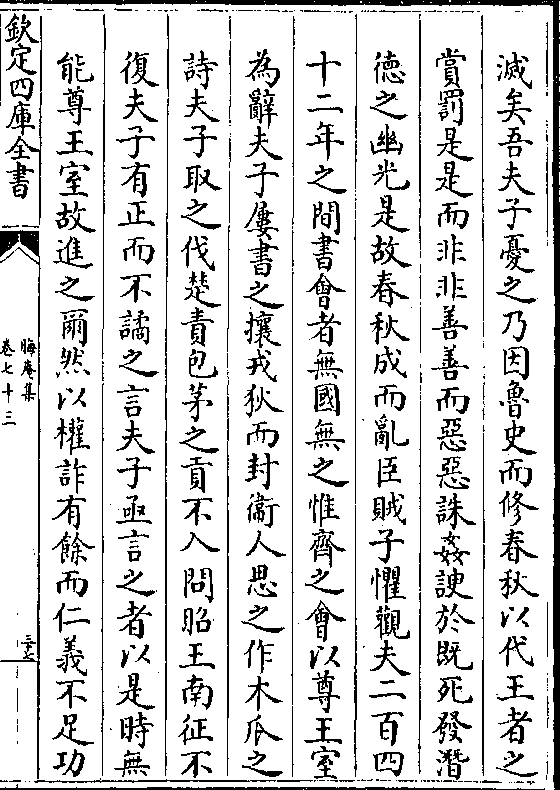 滅矣吾夫子憂之乃因魯史而修春秋以代王者之
賞罰是是而非非善善而惡惡誅姦諛於既死發潛
徳之幽光是故春秋成而亂臣賊子懼觀夫二百四
十二年之間書㑹者無國無之惟齊之㑹以尊王室
為辭夫子屢書之攘戎狄而封衞人思之作木瓜之
詩夫子取之伐楚責包茅之貢不入問昭王南征不
復夫子有正而不譎之言夫子亟言之者以是時無
能尊王室故進之爾然以權詐有餘而仁義不足功
欽定四庫全書
晦庵集
卷七十三
三十七